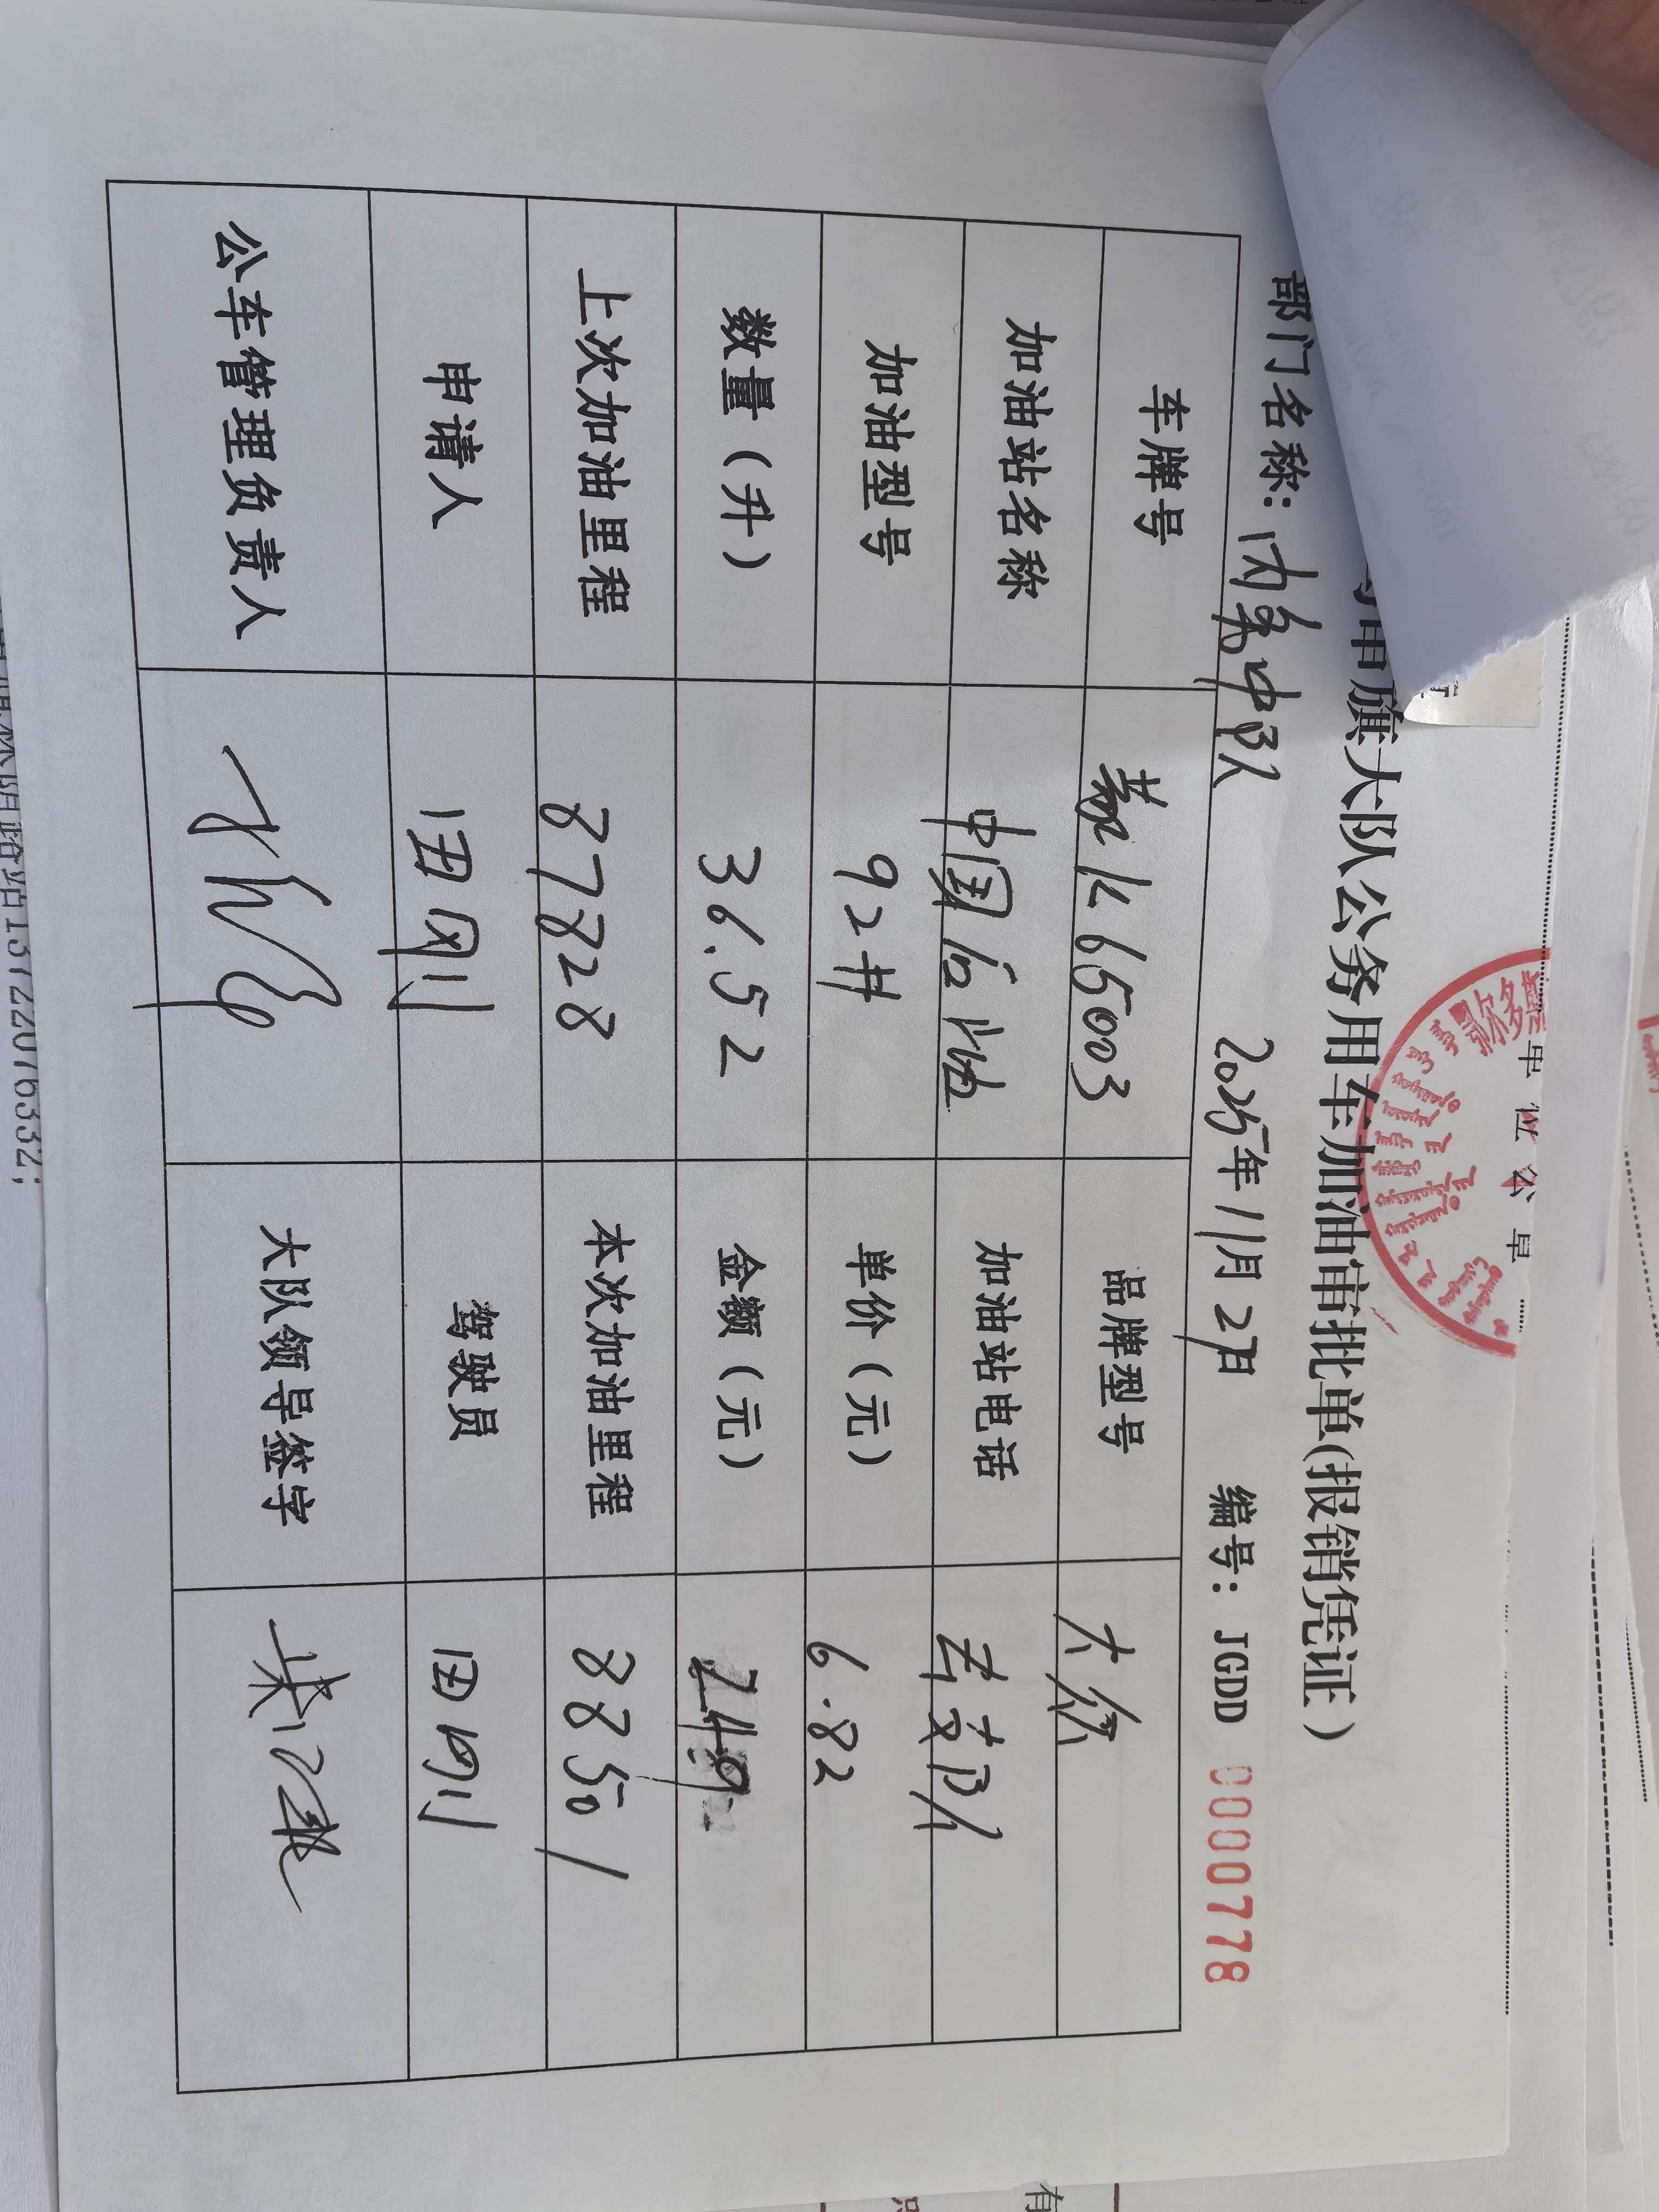 审旗大队公务用车加油审批单(报销凭证)
部门名称: 中队 2025年11月27日 编号: JGDD 0000778
车牌号 蒙K65003 品牌型号 大众
加油站名称 中国石油 加油站电话
加油型号 92# 单价(元) 6.82
数量(升) 36.52 金额(元) 249
上次加油里程 87828 本次加油里程 88501
申请人 田刚 驾驶员 田刚
公车管理负责人 大队领导签字
单位公章
鄂尔多
13722076332;